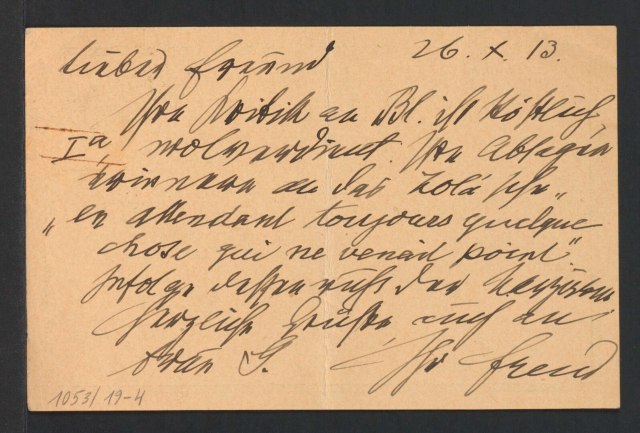 26. X. 13.
Lieber Freund
Ihre Kritik an Bl. ist köstlich,
Ia, wolverdient. Ihre Absagen
erinnern an das Zola'sche
„en attendant toujours quelque
chose qui ne venait point"
Infolge dessen auch der
herzliche Grüße, auch an
Frau G. Ihr Freud
1053/19-4